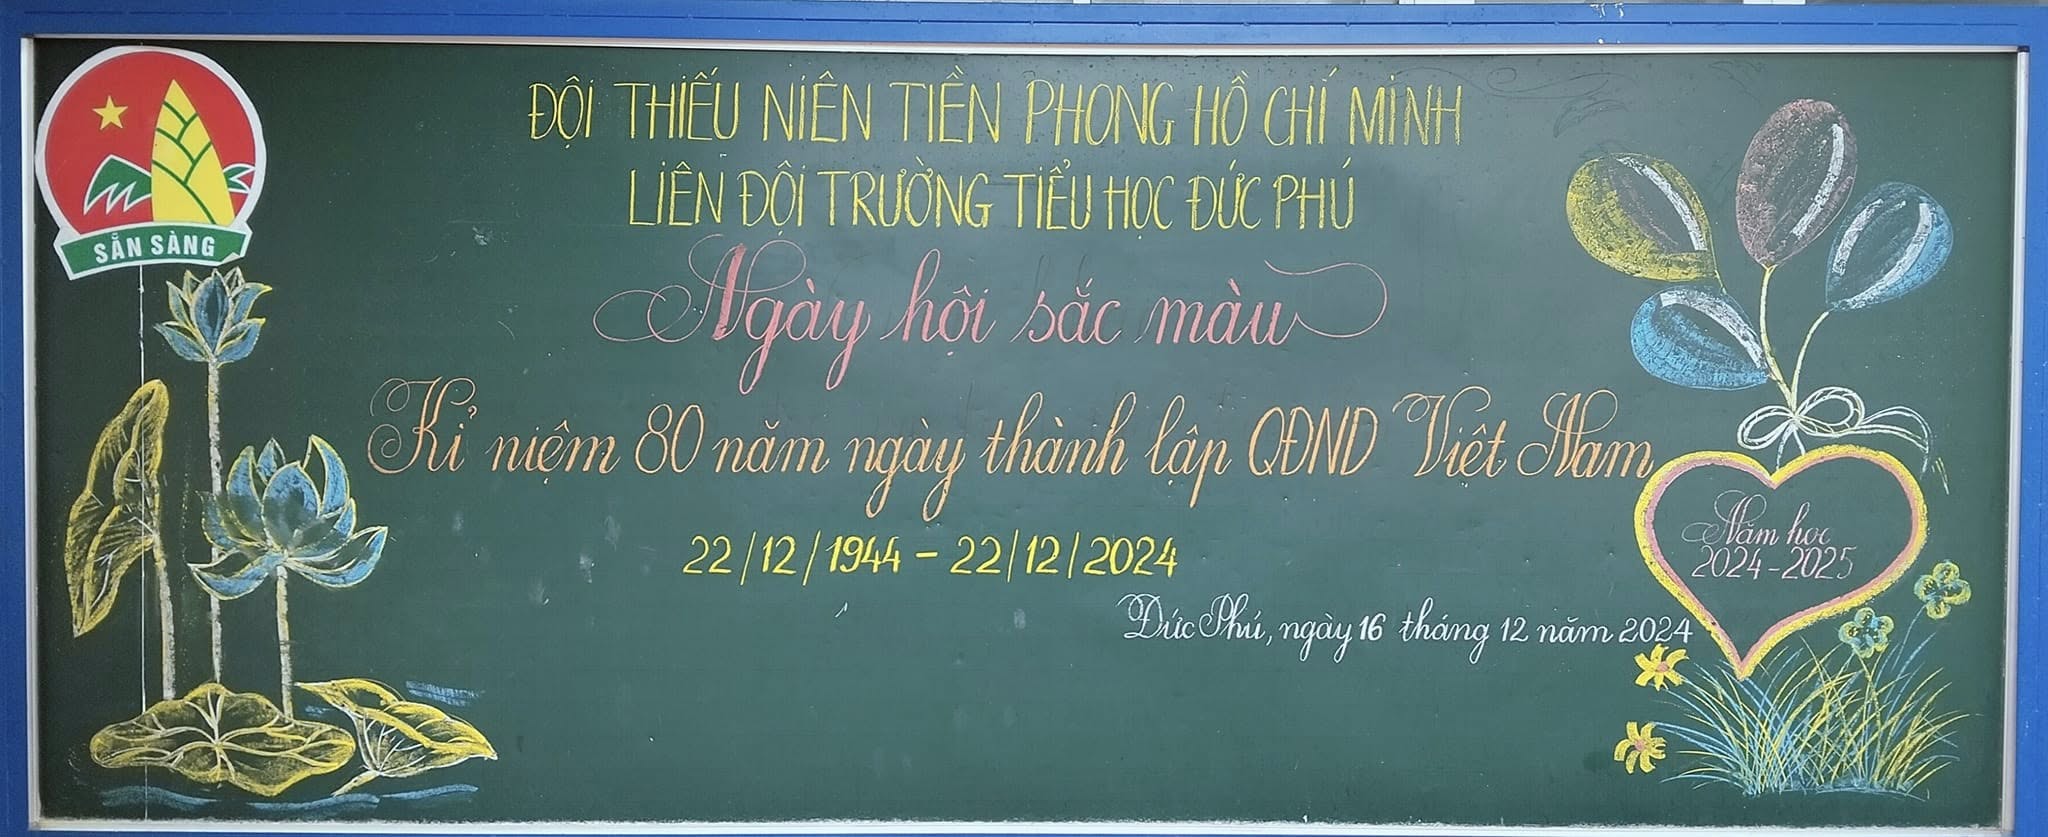 ĐỘI THIẾU NIÊN TIỀN PHONG HỒ CHÍ MINH
LIÊN ĐỘI TRƯỜNG TIỂU HỌC ĐỨC PHÚ
SẴN SÀNG
Ngày hội sắc màu
Kỉ niệm 80 năm ngày thành lập QĐND Việt Nam
22/12/1944 - 22/12/2024
Năm học
2024-2025
Đức Phú, ngày 16 tháng 12 năm 2024